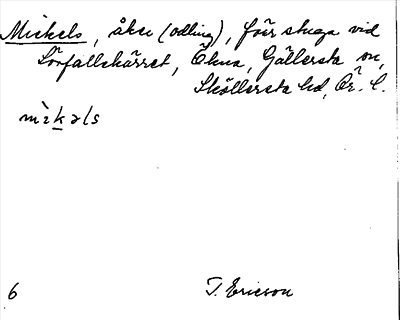 Mickels, åker (odling), förr stuga vid
Sörfallskärret, Ökna, Gällersta sn,
Sköllersta hd, Ör. l.
mìkəls
6 T. Ericson